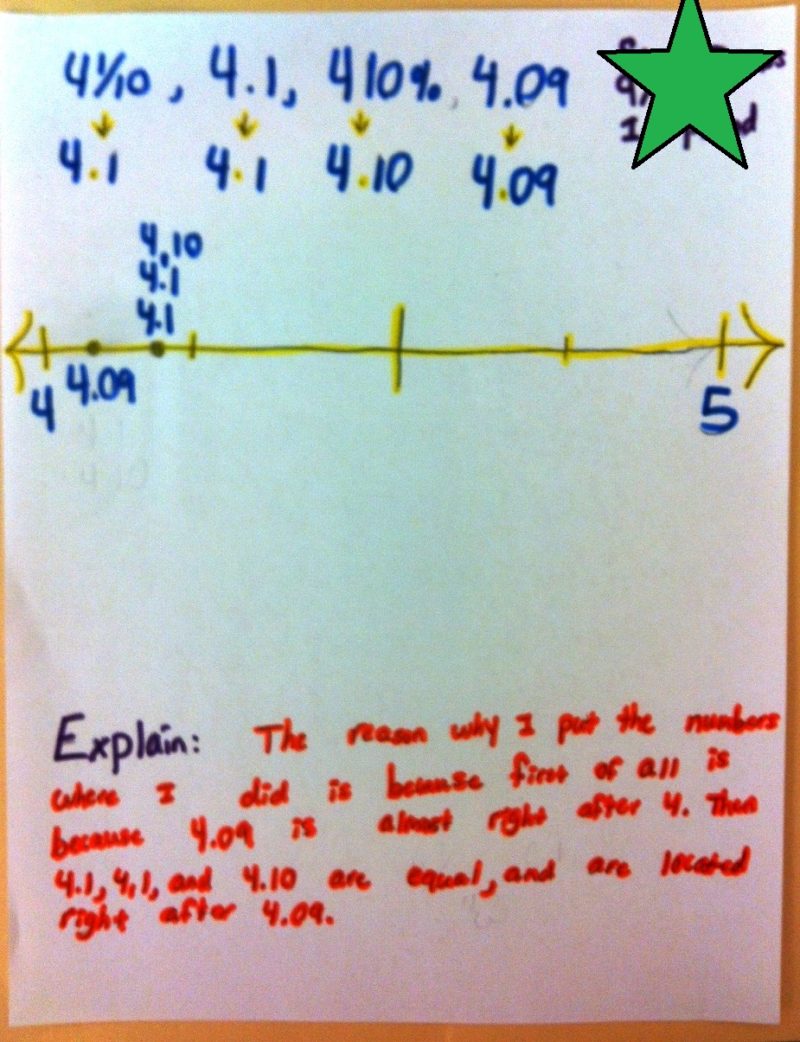 4 1/10, 4.1, 410%, 4.09
4.1 4.1 4.10 4.09
4.10
4.1
4.1
4 4.09 5
Explain: The reason why I put the numbers
where I did is because first of all is
because 4.09 is almost right after 4. Then
4.1, 4.1, and 4.10 are equal, and are located
right after 4.09.